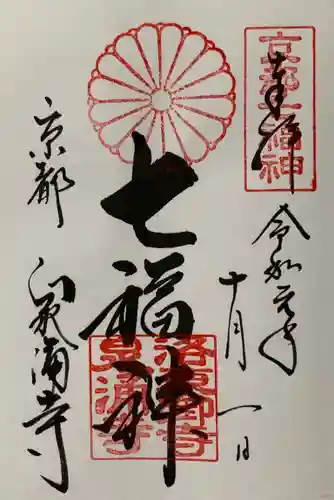 奉拝
京都七福神
令和元年
十月一日
七福神
京都
泉涌寺